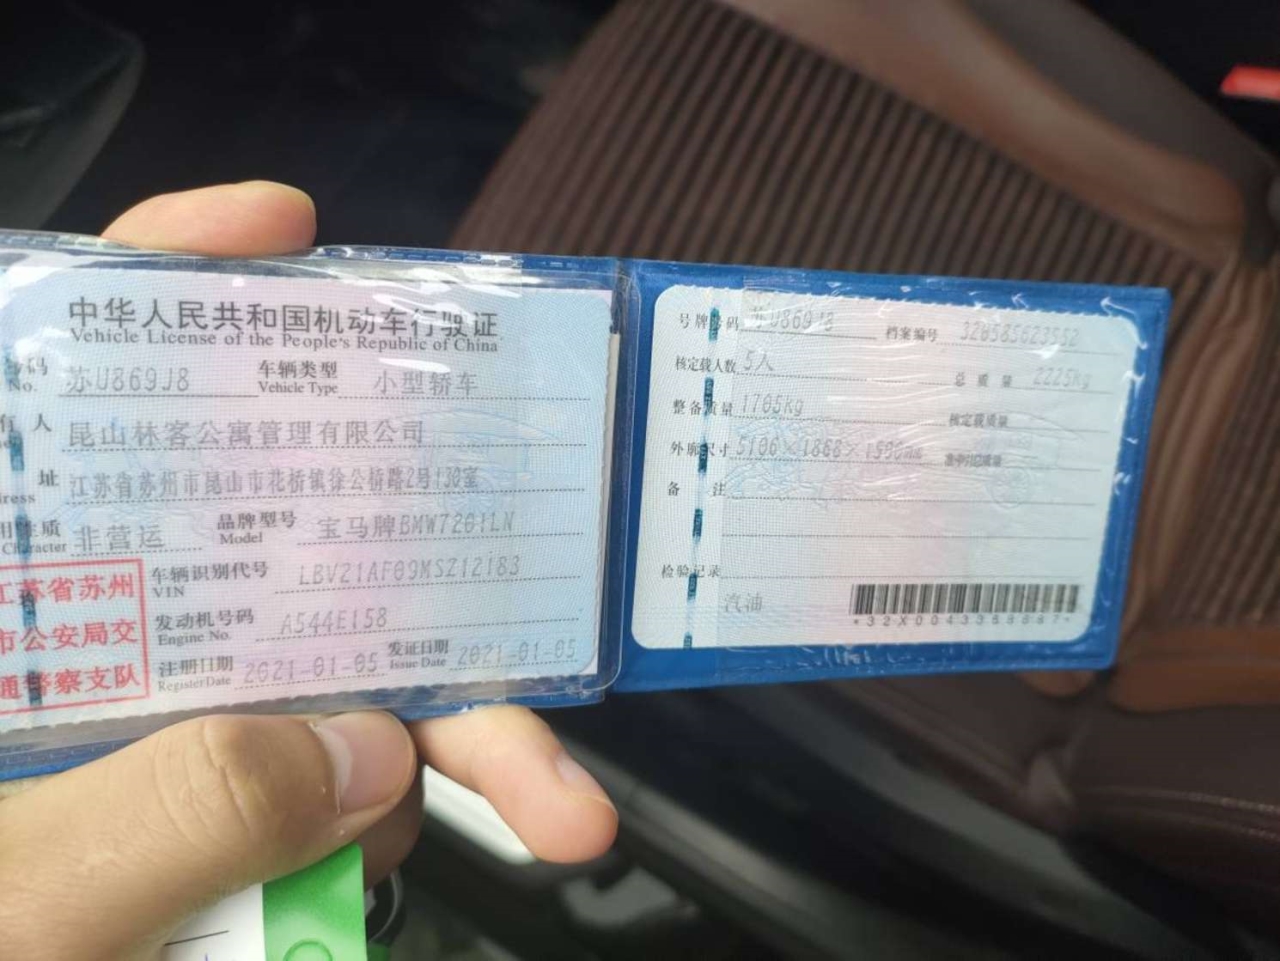 中华人民共和国机动车行驶证
Vehicle License of the People's Republic of China
号码 苏U869J8 车辆类型 小型轿车
No. Vehicle Type
有人 昆山林客公寓管理有限公司
址 江苏省苏州市昆山市花桥镇徐公桥路2号130室
ress
用性质 非营运 品牌型号 宝马牌BMW7201LN
Character Model
江苏省苏州
市公安局交
通警察支队
车辆识别代号 LBV21AF09MSZ12183
VIN
发动机号码 A544E158
Engine No.
注册日期 2021-01-05 发证日期 2021-01-05
Register Date Issue Date
号牌号码 苏U869J8 档案编号 320585623552
核定载人数 5人 总质量 2225kg
整备质量 1705kg 核定载质量
外廓尺寸 5106×1868×1500mm 准牵引总质量
备注
检验记录
汽油